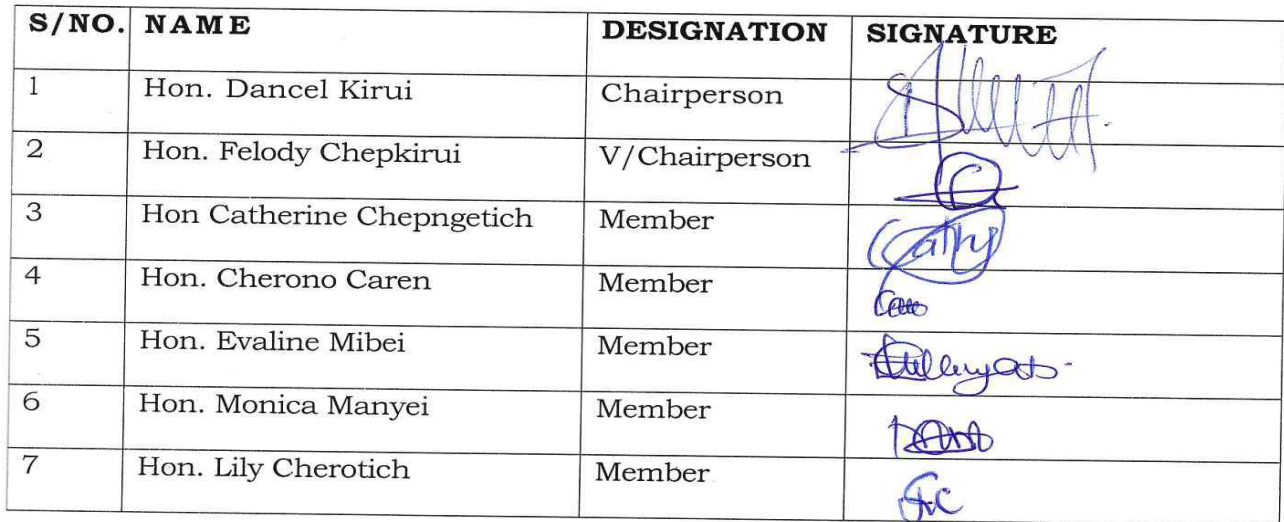 S/NO. NAME DESIGNATION SIGNATURE
1 Hon. Dancel Kirui Chairperson
2 Hon. Felody Chepkirui V/Chairperson
3 Hon Catherine Chepngetich Member Cathy
4 Hon. Cherono Caren Member
5 Hon. Evaline Mibei Member
6 Hon. Monica Manyei Member
7 Hon. Lily Cherotich Member